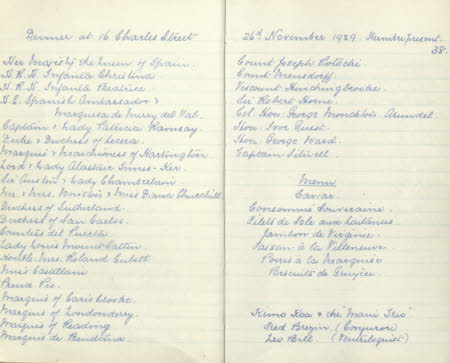 Dinner at 16 Charles Street
Her Majesty the Queen of Spain.
H.R.H Infanta Christina
H.R.H Infanta Beatrice
H.E. Spanish Ambassador &
Marquesa de Merry del Val.
Captain & Lady Patricia Ramsay.
Duke & Duchess of Lecera.
Marquis & Marchioness of Hartington
Lord & Lady Alastair Innes-Ker.
Sir Austen & Lady Chamberlain
Mr. & Mrs. Winston & Miss Diana Churchill
Duchess of Sutherland
Duchess of San Carlos.
Condesa del Puerto
Lady Louis Mountbatten
Honble. Mrs. Roland Cubitt
Miss
Prince Pio.
Marquis of Carisbrooke.
Marquis of Londonderry.
Marquis of Reading
Marquis de Bendaña.
26th November 1929. Number present
38.
Count Joseph Potocki
Count Mensdorff
Viscount Hinchingbrooke.
Sir Robert Horne.
Col. Hon. George Monckton-Arundell.
Hon. Ivor Guest.
Hon. George Ward.
Captain Sitwell
Menu
Caviar.
Consommé Souveraine.
Filets de Sole aux Laitances
Jambon de Virginie.
Faisan à la Villeneuve.
Poires à la Marquise
Biscuits de Gruyère.
Kimo Koa & the "Maui Trio"
Fred Brezin (Conjuror)
Leo Bill. (Ventriloquist)